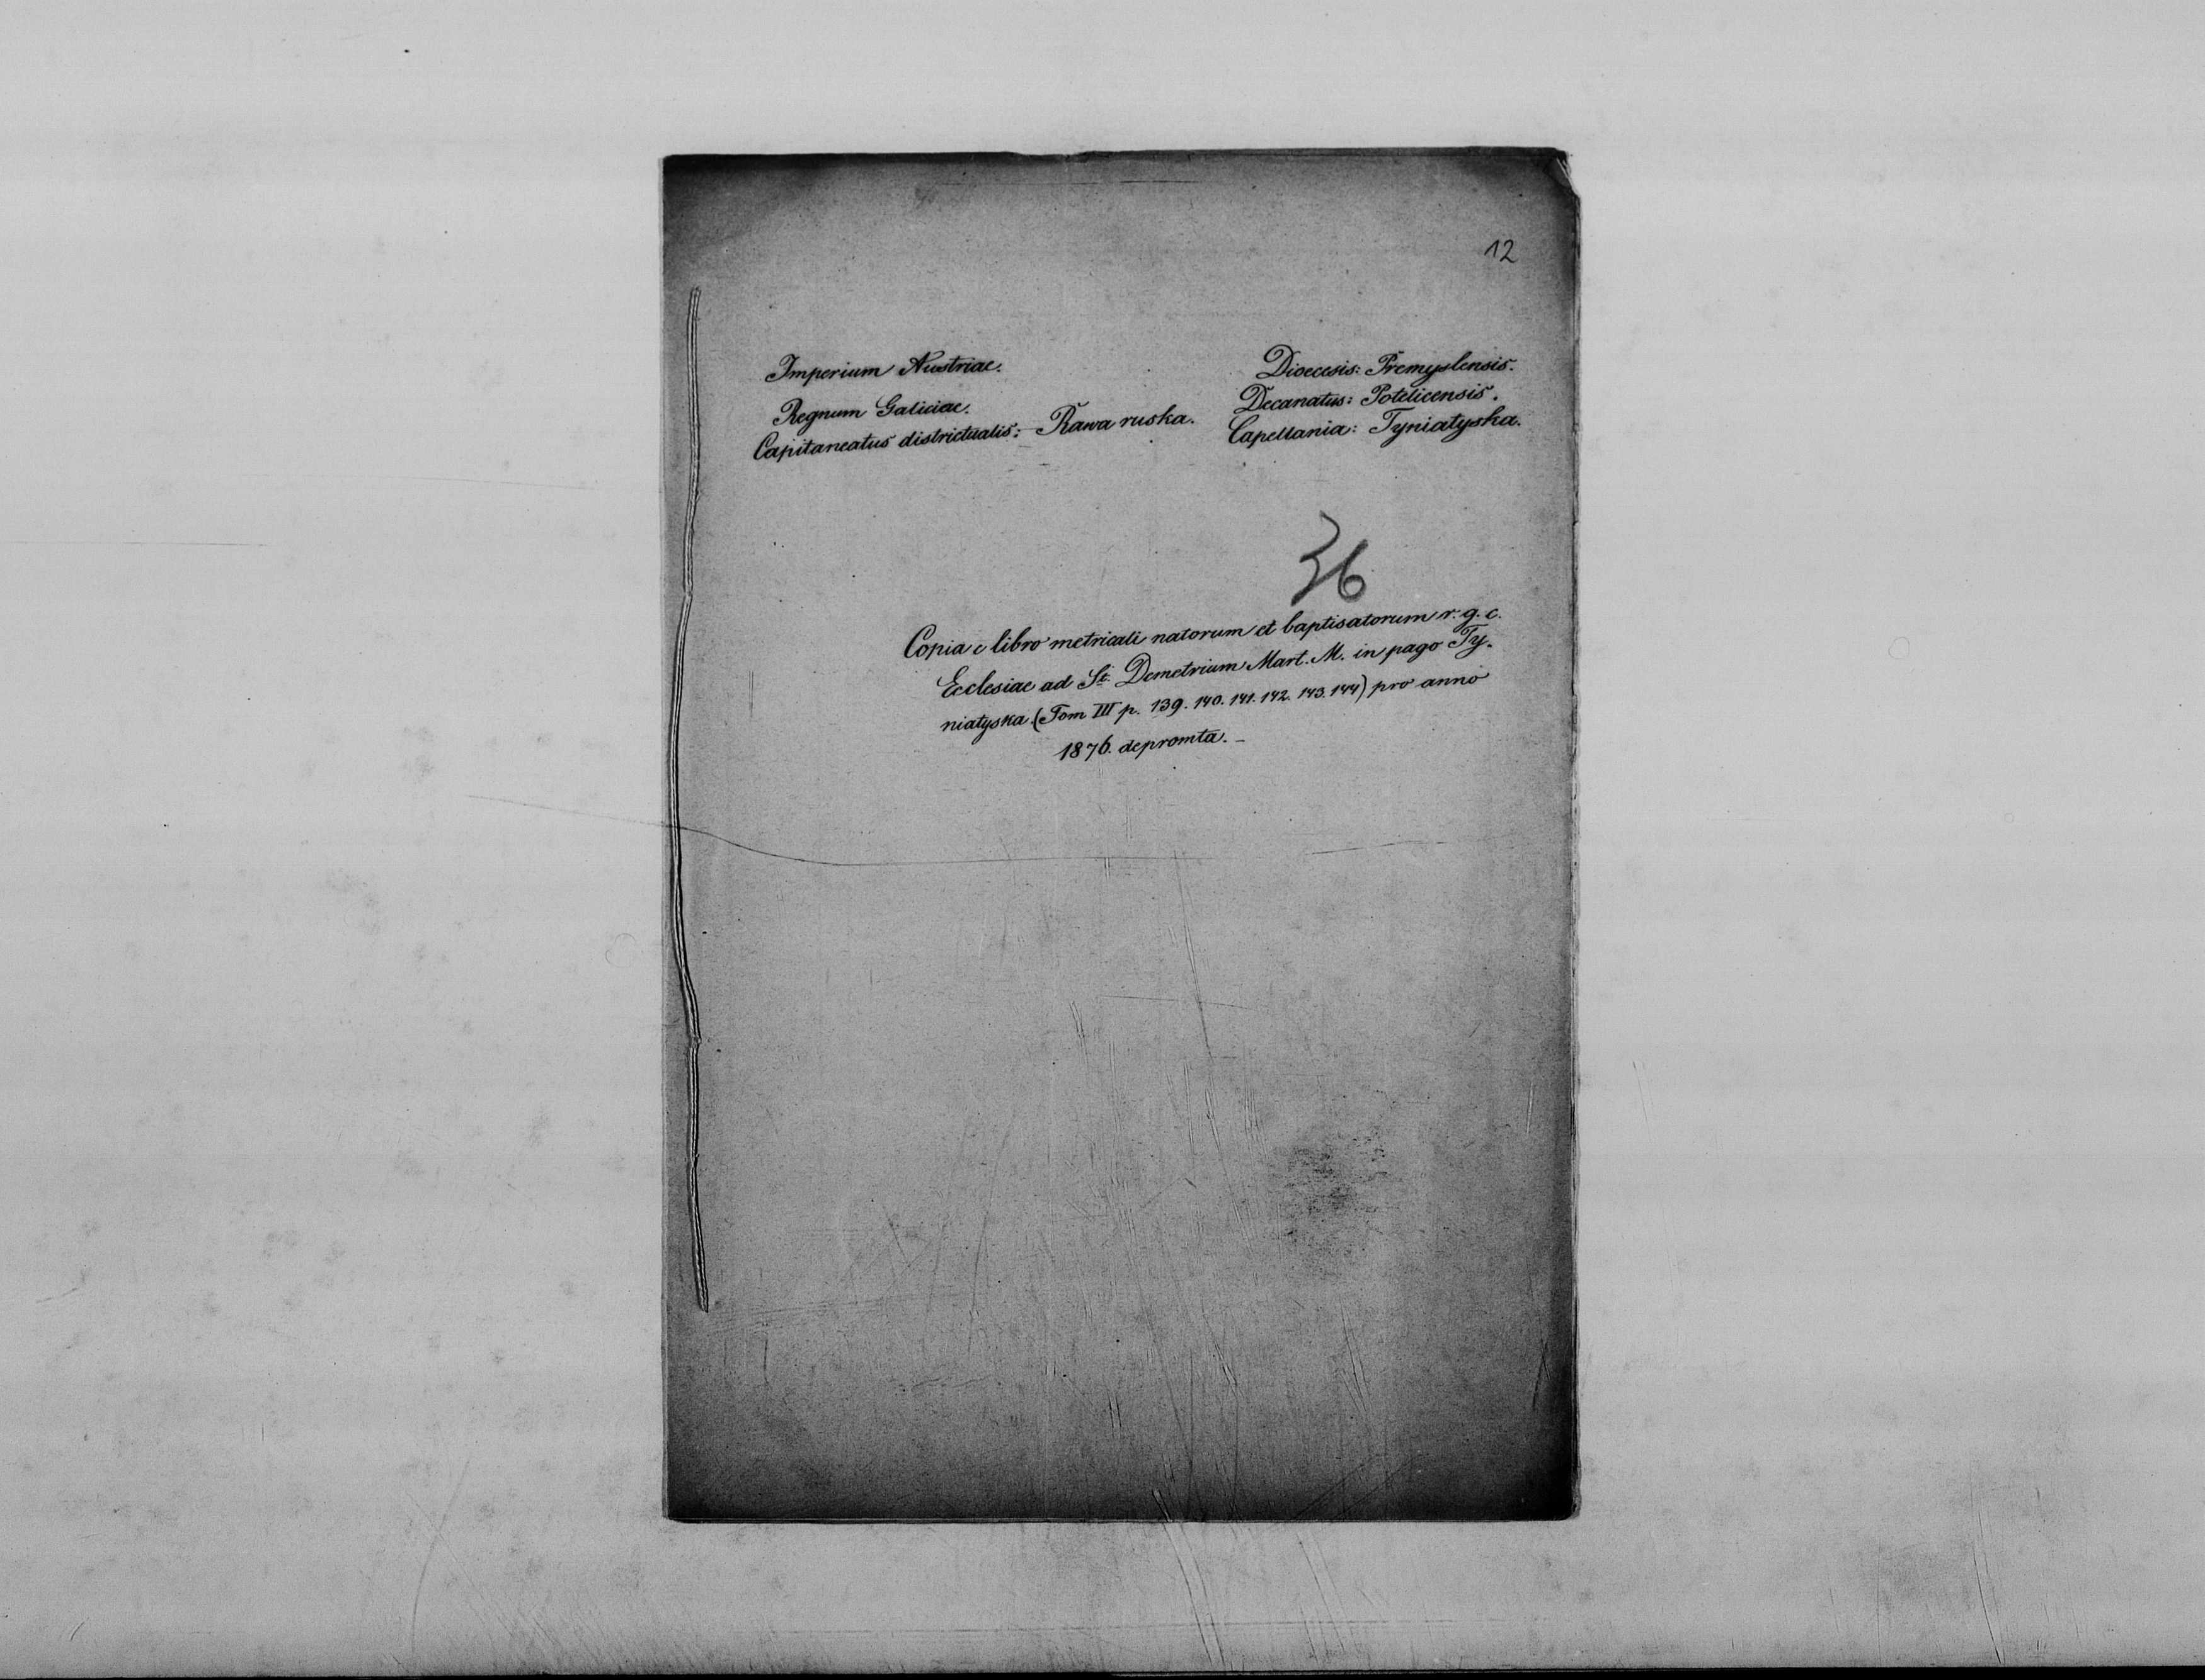 12
Imperium Austriae.
Regnum Galiciae.
Capitaneatus districtualis: Rawa ruska.
Dioecesis: Premyslensis.
Decanatus: Potelicensis.
Capellania: Tyniatyska.
36
Copia e libro metricali natorum et baptisatorum r. g. c.
Ecclesiae ad St. Demetrium Mart. M. in pago Ty-
niatyska (Tom III p. 139. 140. 141. 142. 143. 144) pro anno
1876. depromta. -